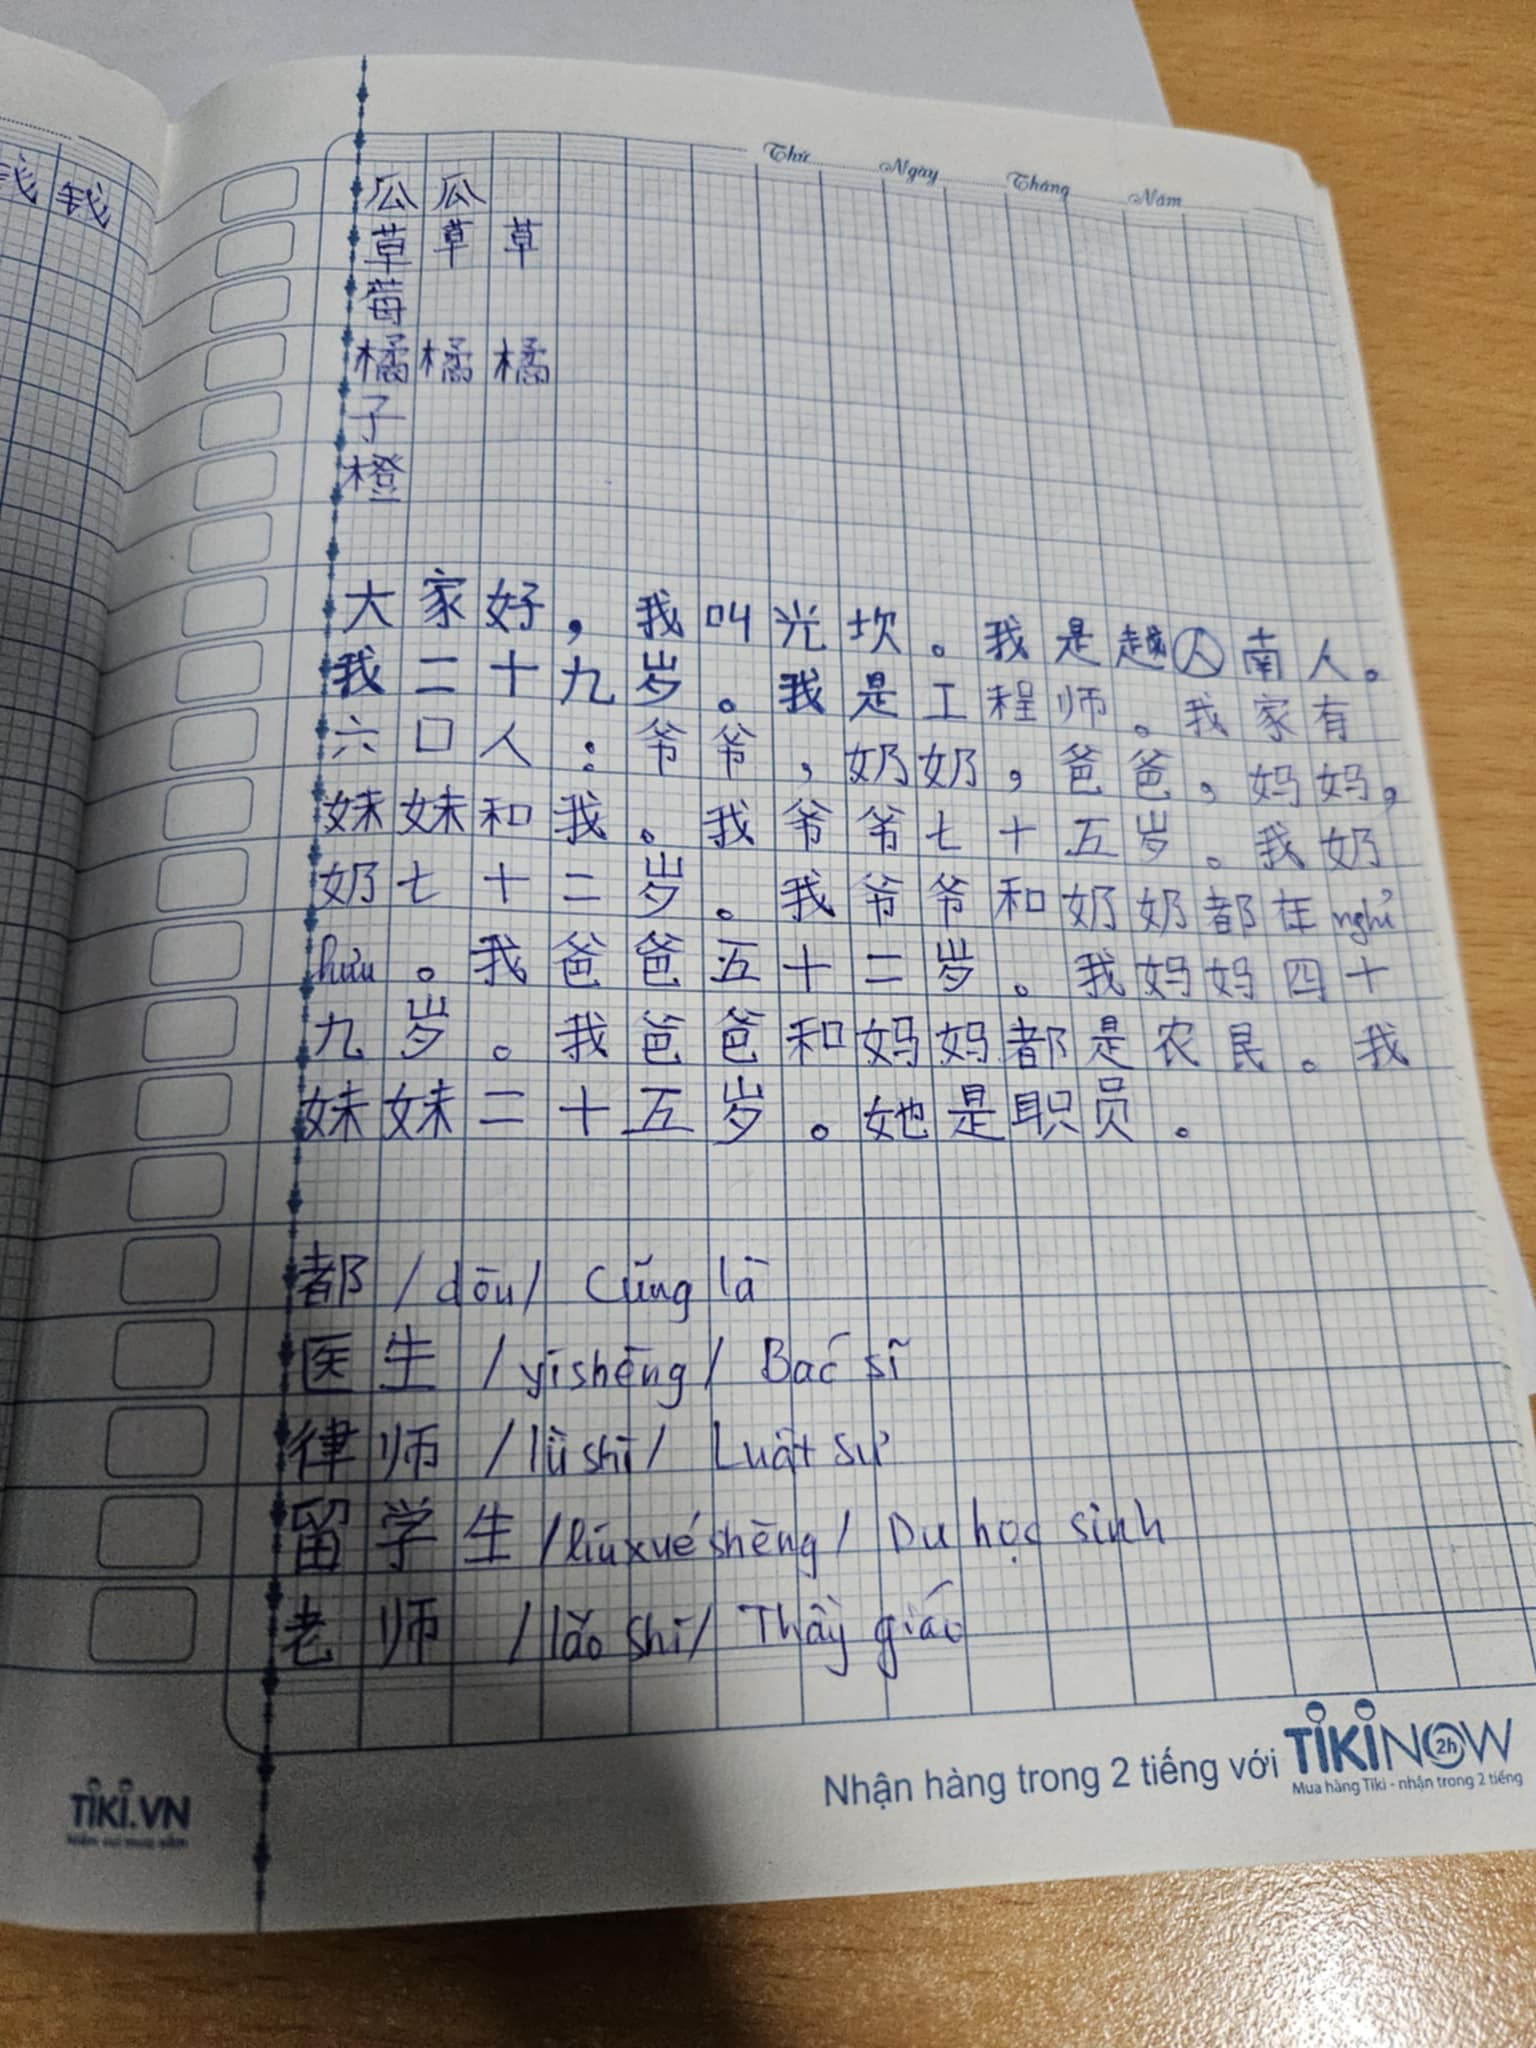 钱
Thứ Ngày Tháng Năm
瓜 瓜
草 草 草
莓
橘 橘 橘
子
橙
大家好，我叫光坎。我是越人南人。
我二十九岁。我是工程师。我家有
六口人：爷爷，奶奶，爸爸，妈妈，
妹妹和我。我爷爷七十五岁。我奶
奶七十二岁。我爷爷和奶奶都在nghỉ
hưu。我爸爸五十二岁。我妈妈四十
九岁。我爸爸和妈妈都是农民。我
妹妹二十五岁。她是职员。
都 /dōu/ Cũng là
医生 /yīshēng/ Bác sĩ
律师 /lǜshī/ Luật sư
留学生 /liúxuéshēng/ Du học sinh
老师 /lǎoshī/ Thầy giáo
Nhận hàng trong 2 tiếng với TIKINOW 2h
Mua hàng Tiki - nhận trong 2 tiếng
TIKI.VN